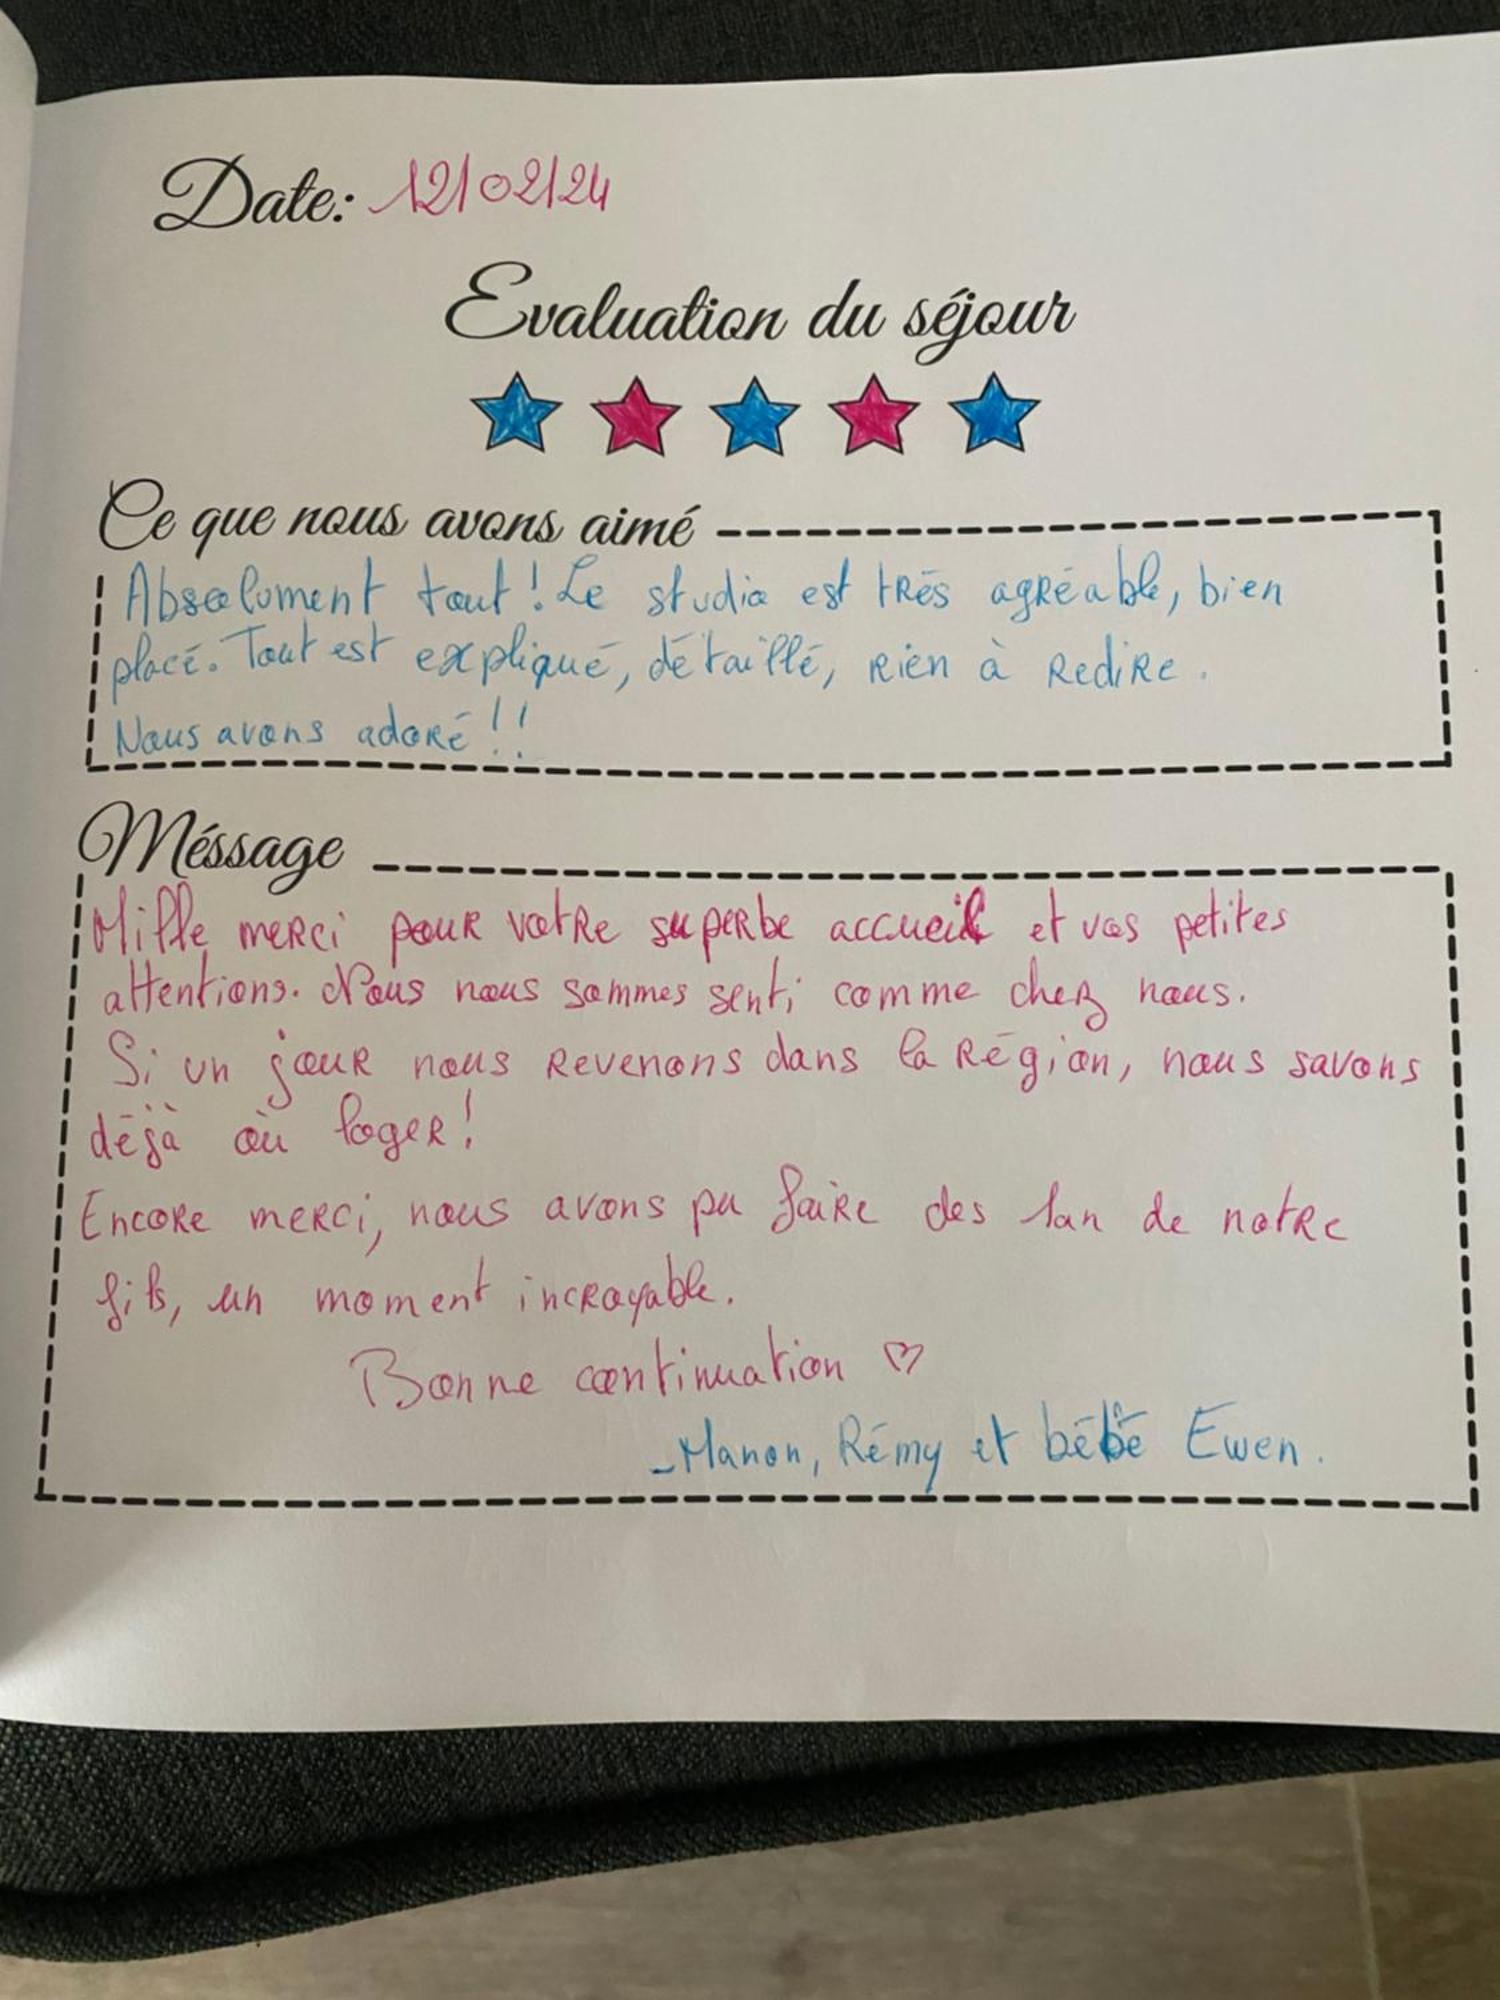 Date: 12/02/24
Evaluation du séjour
Ce que nous avons aimé
Absoolument tout! Le studio est très agréable, bien
placé. Tout est expliqué, détaillé, rien à redire.
Nous avons adoré!!
Méssage
Mille merci pour votre superbe accueil et vos petites
attentions. Nous nous sommes senti comme chez nous.
Si un jour nous revenons dans la région, nous savons
déjà où loger!
Encore merci, nous avons pu faire des 1an de notre
fils, un moment incroyable.
Bonne continuation ♡
_Manon, Rémy et bébé Ewen.